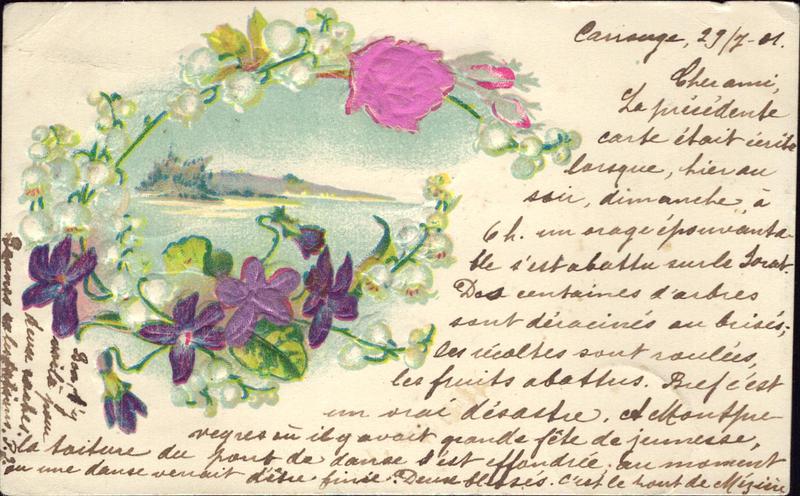 Carrouge, 29/7-01.
Cher ami,
La précédente
carte était écrite
lorsque, hier au
soir, dimanche, à
6 h. un orage épouvanta-
ble s'est abattu sur le Jorat.
Des centaines d'arbres
sont déracinés ou brisés;
les récoltes sont roulées,
les fruits abattus. Bref c'est
un vrai désastre. A Montpre-
veyres où il y avait grande fête de jeunesse,
la toiture du pont de danse s'est effondrée au moment
où une danse venait d'être finie. Deux blessés. C'est le pont de Mézières